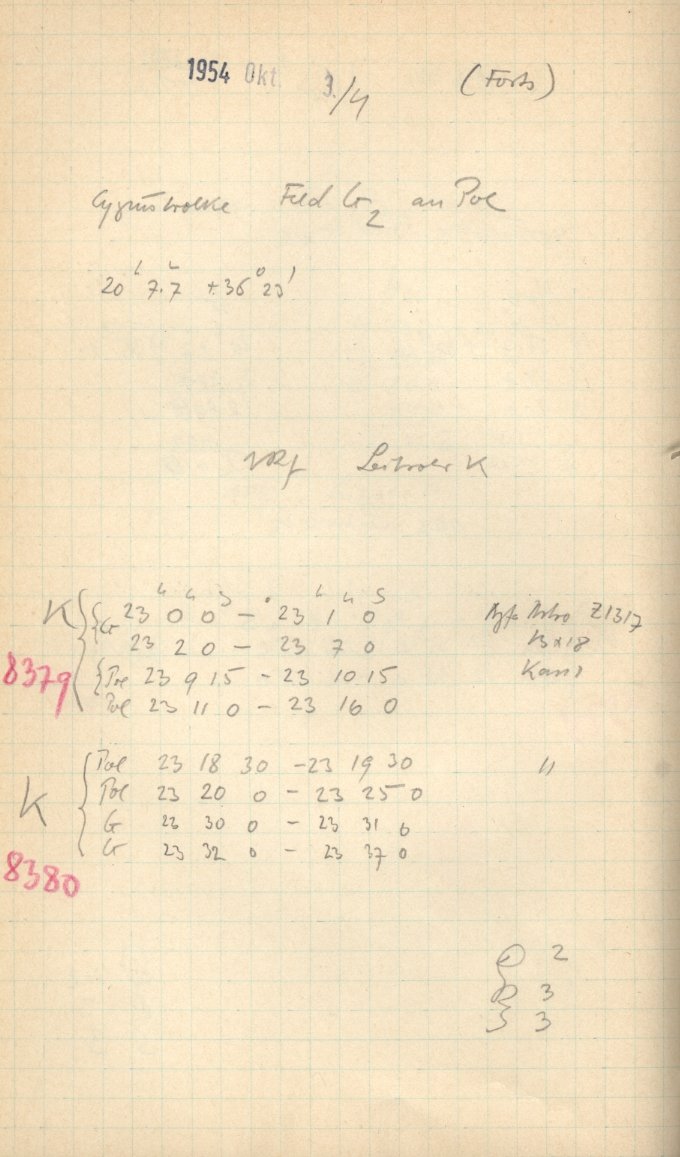 1954 Okt. 3./4 (Forts)
Cygnuswolke Feld G2 an Pol
20h 7.7 +36° 23'
Leitrohr K
K { { G 23h 0 0s - 23h 1 0s Agfa Astro Z1317
23 2 0 - 23 7 0 13x18
8379 { Pol 23 9 15 - 23 10 15
Pol 23 11 0 - 23 16 0
{ Pol 23 18 30 - 23 19 30 "
K Pol 23 20 0 - 23 25 0
G 23 30 0 - 23 31 0
G 23 32 0 - 23 37 0
8380
2
3
3